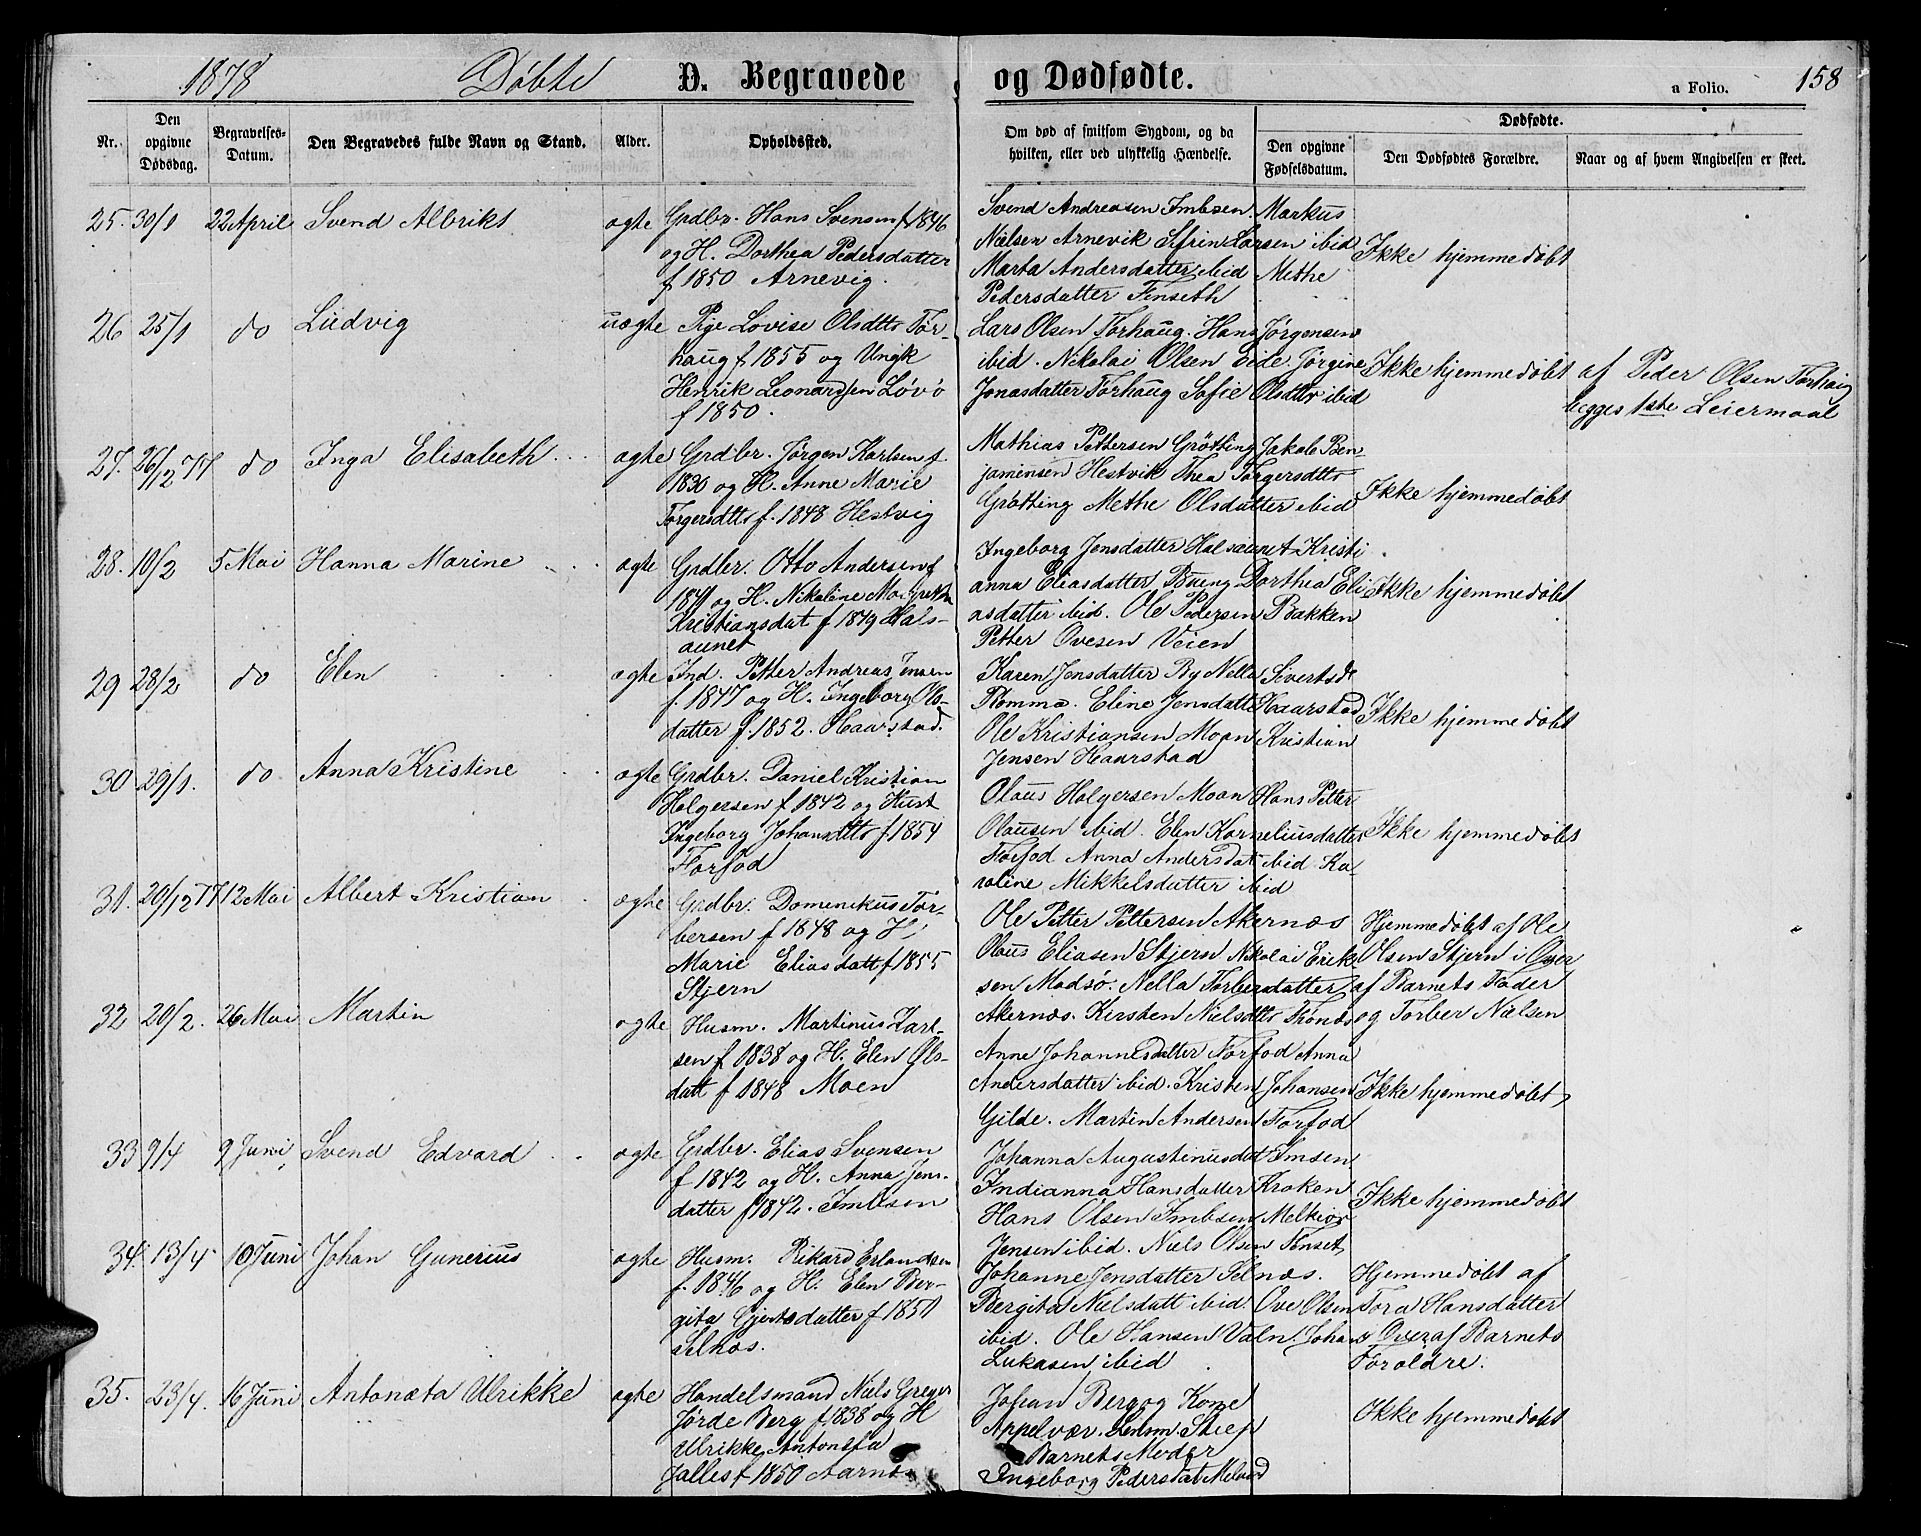 1878 Døbte D. Begravede og Dødfødte. a Folio. 158
Nr.
Den opgivne Dødsdag.
Begravelses-Datum.
Den Begravedes fulde Navn og Stand.
Alder.
Opholdssted.
Om død af smitsom Sygdom, og da hvilken, eller ved ulykkelig Hændelse.
Dødfødte.
Den opgivne Fødselsdatum.
Den Dødfødtes Forældre.
Naar og af hvem Angivelsen er skeet.
25. 30/1 22 April Svend Albrikt ægte
Grdbr. Hans Svensen f 1846
og H. Dorthea Pedersdatter
f 1850 Arnevig.
Svend Andreasen Imbsen. Markus
Nielsen Arnevik Larsen ibid
Marta Andersdatter ibid Methe
Pedersdatter Finseth
Ikke hjemmedøbt
26 25/1 do Ludvig uægte
Pige Lovise Olsdttr Tor-
haug f. 1855 og Ungk
Henrik Leonardsen Løvø
f 1850.
Lars Olsen Torhaug. Hans Jørgensen
ibid. Nikolai Olsen Eide. Jørgine
Jonasdatter Torhaug Sofie Olsdttr ibid
Ikke hjemmedøbt
af Peder Olsen Torhaug
begges 1ste Leiermaal
27. 26/12 77 do Inga Elisabeth ægte
Grdbr. Jørgen Karlsen f.
1830 og H. Anne Marie
Torgersdttr f. 1848 Hestvig
Mathias Pettersen Grøtting Jakob Ben-
jaminsen Hestvik Thea Torgersdttr
Grøtting Methe Olsdatter ibid
Ikke hjemmedøbt
28. 10/2 5 Mai Hanna Marine ægte
Grdbr. Otto Andersen f
1841 og H. Nikoline
Kristiansdat f 1849 Hals-
aunet
Ingeborg Jensdatter Halsaunet Kristi
anna Eliasdatter Bueng Dorthea Eli
asdatter ibid. Ole Pedersen Bakken
Petter Ovesen Veien
Ikke hjemmedøbt
29 28/2 do Elen ægte
Ind. Petter Andreas Jensen
f. 1847 og H. Ingeborg Ols-
datter f. 1852. Haarstad.
Karen Jonsdatter By Nella Sivertsd.
Romma. Eline Jensdatter Haarstad
Ole Kristiansen Moan Kristian
Jensen Haarstad
Ikke hjemmedøbt
30 29/1. do Anna Kristine ægte
Grdbr. Daniel Kristian
Holgersen f 1842 og Hust
Ingeborg Johansdttr f 1854
Forfod
Olaus Holgersen Moan Hans Petter
Olausen ibid. Elen Korneliusdatter
Forfod Anna Andersdat ibid Ka-
roline Mikkelsdatter ibid
Ikke hjemmedøbt
31. 20/12 77 12 Mai Albert Kristian ægte
Grdbr. Domenikus Tor-
bersen f 1848 og H.
Marie Eliasdatt f 1855
Stjern
Ole Petter Pettersen Akernæs
Olaus Eliasen Stjern Nikolai Erik-
sen Madsø. Nella Torbersdatter
Akernæs. Kirsten Nielsdttr Fiønæs
Hjemmedøbt af Ole
Olsen Stjern i Over
af Barnets Fader
og Torber Nielsen
32 20/2. 26 Mai Martin ægte
Husm. Martinus Karl-
sen f 1838 og H. Elen Ols-
datt f 1848 Moen
Anne Johannesdatter Forfod Anna
Andersdatter ibid. Kristen Johansen
Gilde. Martin Andersen Forfod
Ikke hjemmedøbt
33 9/4 9 Juni Svend Edvard ægte
Grdbr. Elias Svensen
f 1842 og H. Anna Jens-
datter f 1842. Imbsen
Johanna Augustinusdat Imsen
Indianna Hansdatter Kroken
Hans Olsen Imbsen Melkior
Jensen ibid. Niels Olsen Finset
Ikke hjemmedøbt
34. 13/4 10 Juni Johan Gunerius ægte
Husm. Rikard Erlandsen
f. 1846 og H. Elen Ber-
gita Gjertsdatter f 1851
Selnæs.
Johanne Jensdatter Selnæs.
Bergita Nielsdatt ibid. Ove Olsen
ibid. Ole Hansen Valn. Johan
Lukasen ibid
Hjemmedøbt af
Tora Hansdatter
i Over af Barnets
Forældre.
35. 23/4. 16 Juni Antonæta Ulrikke ægte
Handelsmand Niels Greger
Jørde Berg f 1838 og H
Ulrikke Antonetta
f 1850
Johan Berg og Kone
Appelvær. Lensm.
Barnets Moder
Ingeborg Pedersdat
Ikke hjemmedøbt